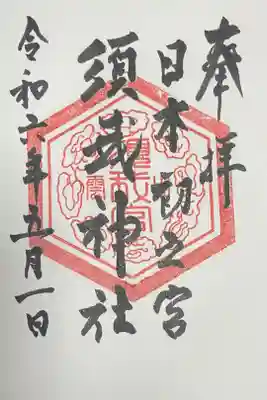 奉拝
日本初之宮
須我神社
令和六年五月一日